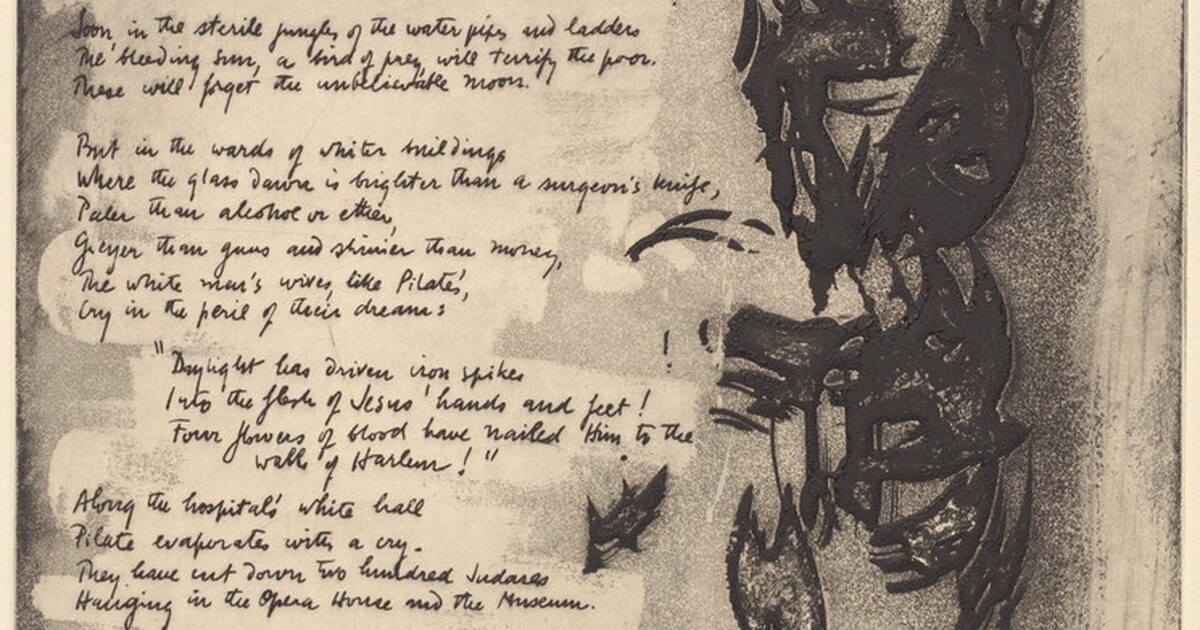 Soon in the sterile jungles of the water pipes and ladders
The bleeding sun, a bird of prey, will terrify the poor.
These will forget the unbelievable moon.
But in the wards of whiter buildings
Where the glass dawn is brighter than a surgeon's knife,
Paler than alcohol or ether,
Greyer than guns and shinier than money,
The white man's wives, like Pilate's,
Cry in the peril of their dreams:
"Daylight has driven iron spikes
Into the flesh of Jesus' hands and feet!
Four flowers of blood have nailed Him to the
walls of Harlem!"
Along the hospital's white hall
Pilate evaporates with a cry.
They have cut down two hundred Judases
Hanging in the Opera House and the Museum.